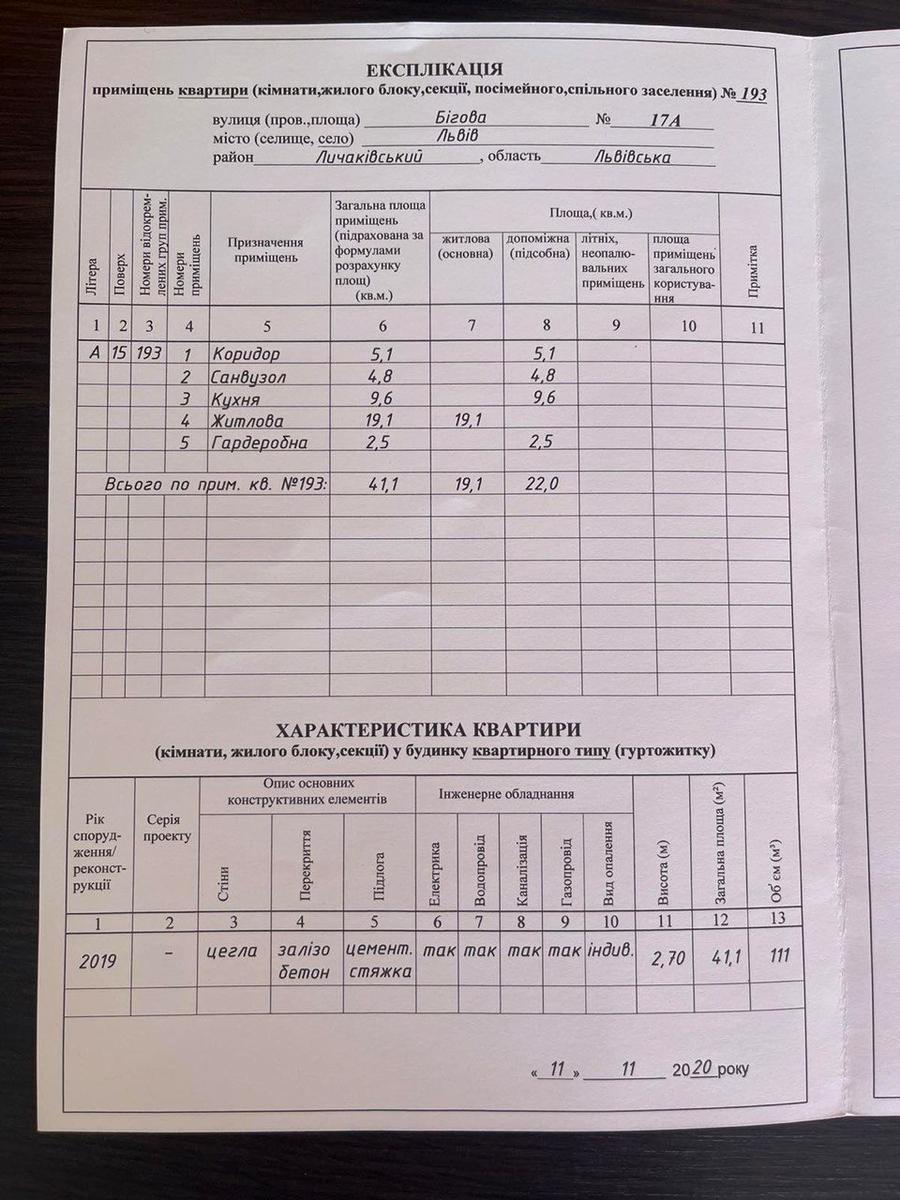 ЕКСПЛІКАЦІЯ
приміщень квартири (кімнати,жилого блоку,секції, посімейного,спільного заселення) № 193
вулиця (пров.,площа) Бігова № 17А
місто (селище, село) Львів
район Личаківський, область Львівська
Літера
Поверх
Номери відокрем-
лених груп прим.
Номери
приміщень
Призначення
приміщень
Загальна площа
приміщень
(підрахована за
формулами
розрахунку
площ)
(кв.м.)
Площа,( кв.м.)
житлова
(основна)
допоміжна
(підсобна)
літніх,
неопалю-
вальних
приміщень
площа
приміщень
загального
користува-
ння
Примітка
1 2 3 4 5 6 7 8 9 10 11
А 15 193 1 Коридор 5,1 5,1
2 Санвузол 4,8 4,8
3 Кухня 9,6 9,6
4 Житлова 19,1 19,1
5 Гардеробна 2,5 2,5
Всього по прим. кв. №193: 41,1 19,1 22,0
ХАРАКТЕРИСТИКА КВАРТИРИ
(кімнати, жилого блоку,секції) у будинку квартирного типу (гуртожитку)
Рік
споруд-
ження/
реконст-
рукції
Серія
проекту
Опис основних
конструктивних елементів
Стіни
Перекриття
Підлога
Інженерне обладнання
Електрика
Водопровід
Каналізація
Газопровід
Вид опалення
Висота (м)
Загальна площа (м²)
Об'єм (м³)
1 2 3 4 5 6 7 8 9 10 11 12 13
2019 – цегла залізо цемент. так так так так індив. 2,70 41,1 111
бетон стяжка
« 11 » 11 2020 року